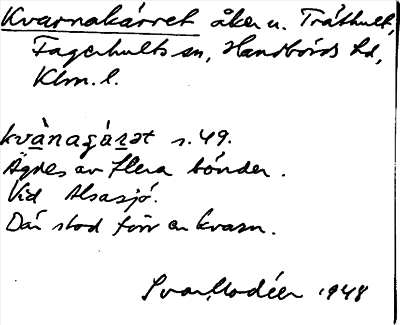 Kvarnakärret åker u. Träthult,
Fagerhults sn, Handbörds hd,
Klm. l.
kvànagáʀət s. 49.
Äges av flera bönder.
Vid Alsasjö.
Där stod förr en kvarn.
Ivar Modéer 1948